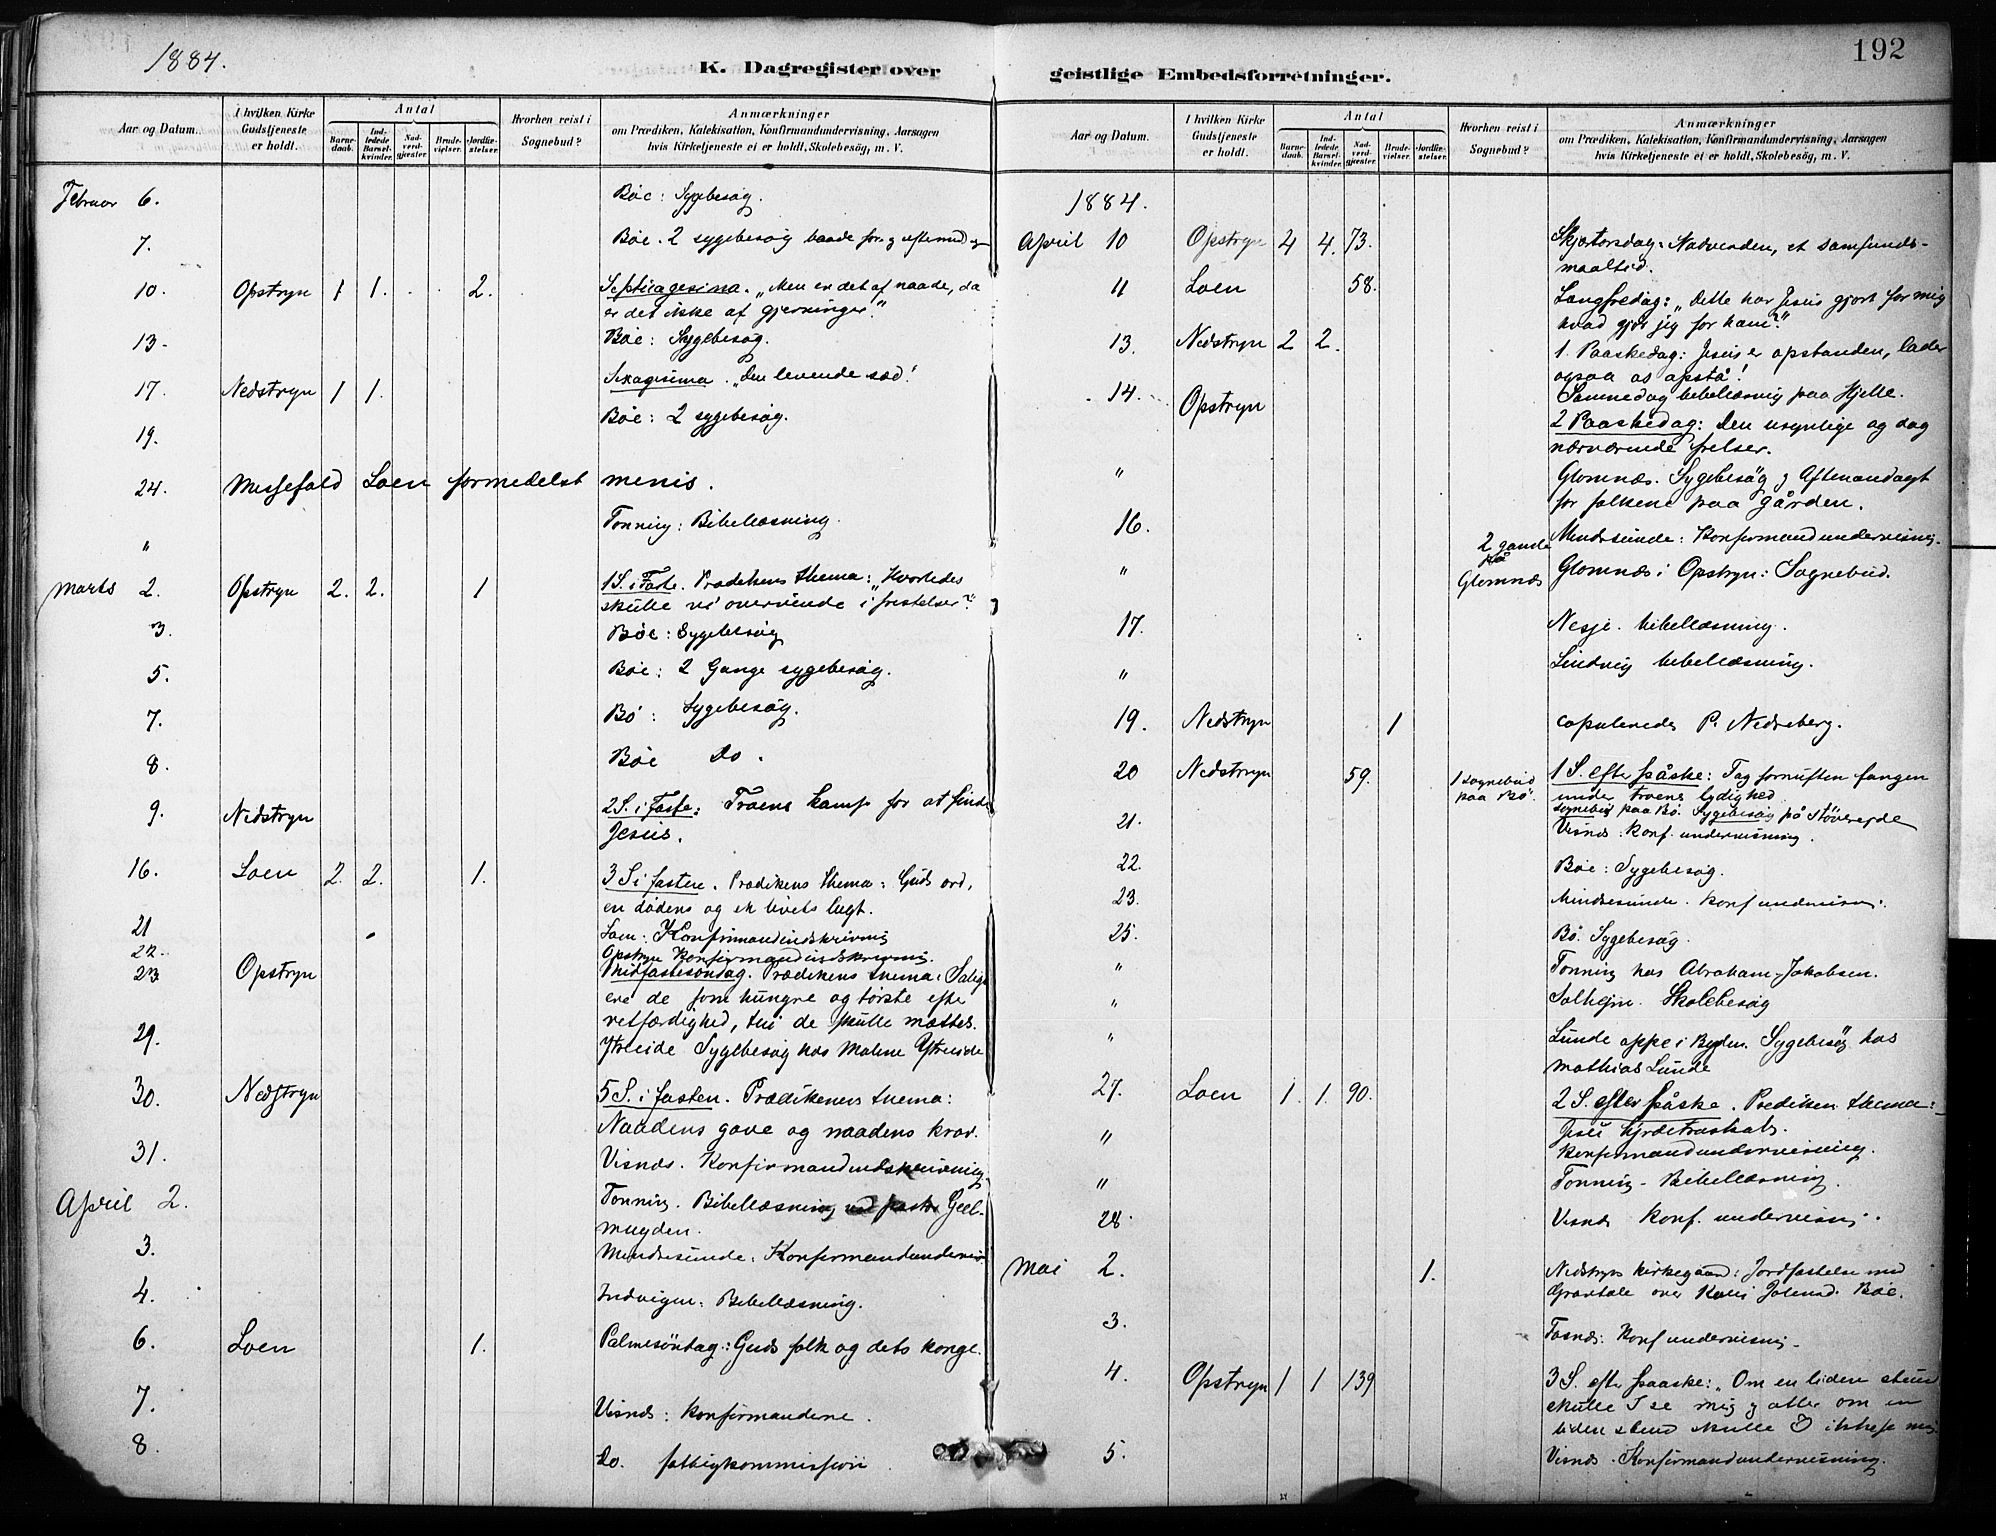 192
1884.
K. Dagregister over
geistlige Embedsforretninger.
Aar og Datum.
I hvilken Kirke Gudstjeneste er holdt.
Antal
Barnedaab.
Indledede Barselkvinder.
Nadverdgjester.
Brudevielser.
Jordfæstelser.
Hvorhen reist i Sognebud?
Anmærkninger
om Prædiken, Katekisation, Konfirmandundervisning, Aarsagen
hvis Kirketjeneste ei er holdt, Skolebesög, m. V.
Februar 6. Böe: Sygebesøg.
7. Böe. 2 sygebesøg baade for- og eftermid
10. Opstryn 1 1. 2. Septuagesima. „Men er det af naade, da
er det ikke af gjerninger."
13. Böe: Sygebesøg.
17. Nedstryn 1 1. Sexagesima. „Den levende sæd!
19. Böe: 2 sygebesøg.
24. Messefald Loen formedelst menis.
" Tonning: Bibellæsning.
Marts 2. Opstryn 2. 2. 1 1 S. i Faste. Prædikens thema: „Hvorledes
skulle vi overvinde i fristelser?"
3. Böe: Sygebesøg
5. Böe: 2 Gange sygebesøg.
7. Bö: Sygebesøg.
8. Böe Do.
9. Nedstryn 2 S. i Faste: Troens kamp for at finde
Jesus.
16. Loen 2. 2. 1. 3 S i fasten. Prædikens thema: Guds ord,
en dødens og et livets lugt.
21 Loen: Konfirmandindskrivning
22. Opstryn Konfirmandindskrivning.
23 Opstryn Midfastesöndag. Prædikens thema: Salige
ere de som hungre og törste efter
retfærdighed, thi de skulle mættes.
29. Ytreeide Sygebesøg hos Malene Ytreeide
30. Nedstryn 5 S. i fasten. Prædikenens thema:
Naadens gave og naadens krav.
31. Visnæs. Konfirmandindskrivning
April 2. Tonning. Bibellæsning ved pastor Geel-
muyden.
3. Mindresunde: Konfirmandundervis
4. Indvigen: Bibellæsning.
6. Loen 1. Palmesöndag: Guds folk og dets konge.
7. Visnæs: Konfirmanderne.
8. Do. fattigkommission
Aar og Datum.
I hvilken Kirke Gudstjeneste er holdt.
Antal
Barnedaab.
Indledede Barselkvinder.
Nadverdgjester.
Brudevielser.
Jordfæstelser.
Hvorhen reist i Sognebud?
Anmærkninger
om Prædiken, Katekisation, Konfirmandundervisning, Aarsagen
hvis Kirketjeneste et er holdt, Skolebesög, m. V.
1884.
April 10 Opstryn 4 4. 73. Skjærtorsdag: Nadverden, et samfunds-
maaltid.
11 Loen 58. Langfredag: „Dette har Jesus gjort for mig
hvad gjør jeg for ham?"
13. Nedstryn 2 2. 1. Paaskedag: Jesus er opstanden, lader
ogsaa os opstå!
Sammedag bibellæsning paa Hjelle.
14. Opstryn 2 Paaskedag: Den usynlige og dog
nærværende frelser.
" Glomnæs. Sygebesøg og Aftenandagt
for folkene paa gården.
16. Mindresunde: Konfirmandundervisning.
" 2 gamle på Glomnæs Glomnæs i Opstryn: Sognebud.
17. Nesje. bibellæsning.
" Lindvig bibellæsning.
19. Nedstryn 1 copulerede P. Nedreberg.
20 Nedstryn 59. 1 sognebud paa Bö. 1 S. efter påske: Tag fornuften fangen
under troens lydighed
sognebud paa Bö. Sygebesøg på Støvereide
21. Visnæs: Konf. undervisning.
22. Böe: Sygebesøg.
23. Mindresunde. Konf undervisning.
25. Bö. Sygebesøg.
" Tonning hos Abraham Jakobsen.
" Solheim. Skolebesøg
" Lunde oppe i Bygden. Sygebesøg hos
Mathias Lunde
27. Loen 1. 1. 90. 2 S. efter Påske. Prediken thema:
Jesu hjordetroskab.
" Konfirmandundervisning.
" Tonning - Bibellæsning.
28. Visnæs Konf. undervisning.
Mai 2. 1. Nedstryn kirkegaard: Jordfæstelse med
Gravtale over Böe.
3. Tosnæs: Konf undervisning.
4. Opstryn 1 1 139 3 S. efter paaske: „Om en liden stund
skulle I se mig og atter om en
liden stund skulle I ikke se mig
5. Visnæs. Konfirmandundervisning.